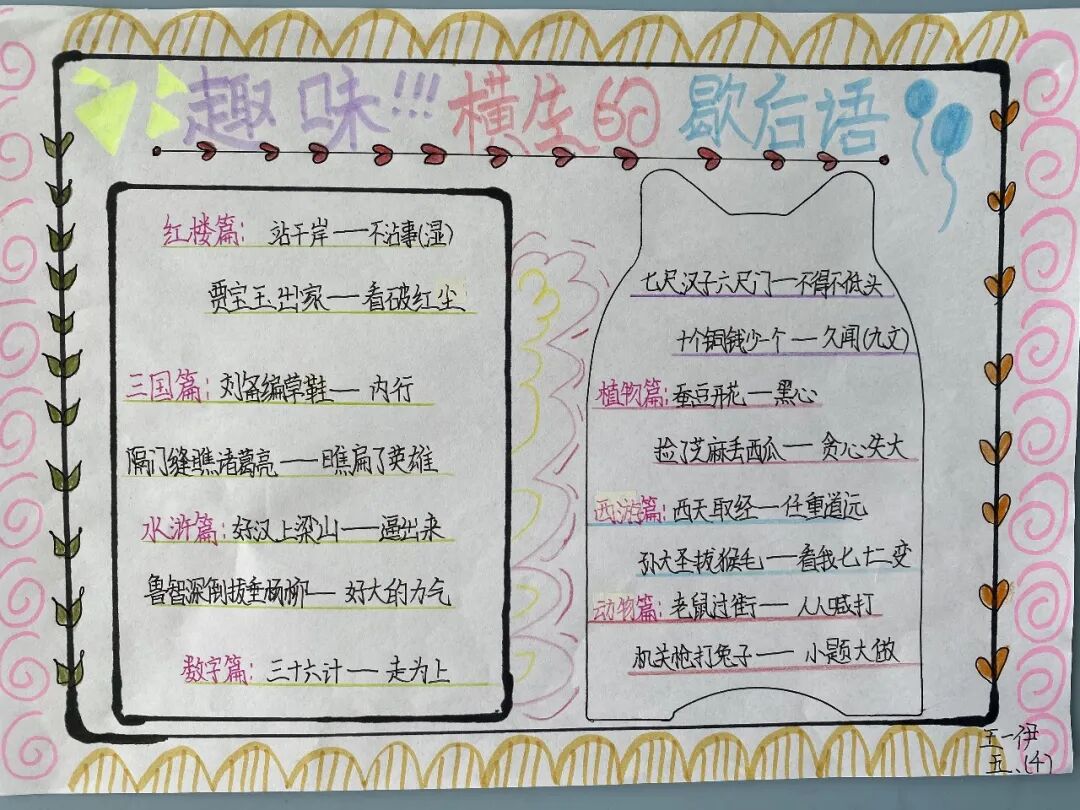 趣味!!!横生的歇后语
红楼篇: 站干岸——不沾事(湿)
贾宝玉出家——看破红尘
三国篇: 刘备编草鞋——内行
隔门缝瞧诸葛亮——瞧扁了英雄
水浒篇: 好汉上梁山——逼出来
鲁智深倒拔垂杨柳——好大的力气
数字篇: 三十六计——走为上
七尺汉子六尺门—不得不低头
十个铜钱少一个—久闻(九文)
植物篇: 蚕豆开花—黑心
捡了芝麻丢西瓜——贪心失大
西游篇: 西天取经—任重道远
孙大圣拔猴毛——看我七十二变
动物篇: 老鼠过街——人人喊打
机关枪打兔子——小题大做
王一伊
五、(4)